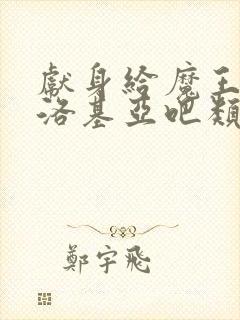 獻身給魔王
洛基亞吧類
鄭宇飛